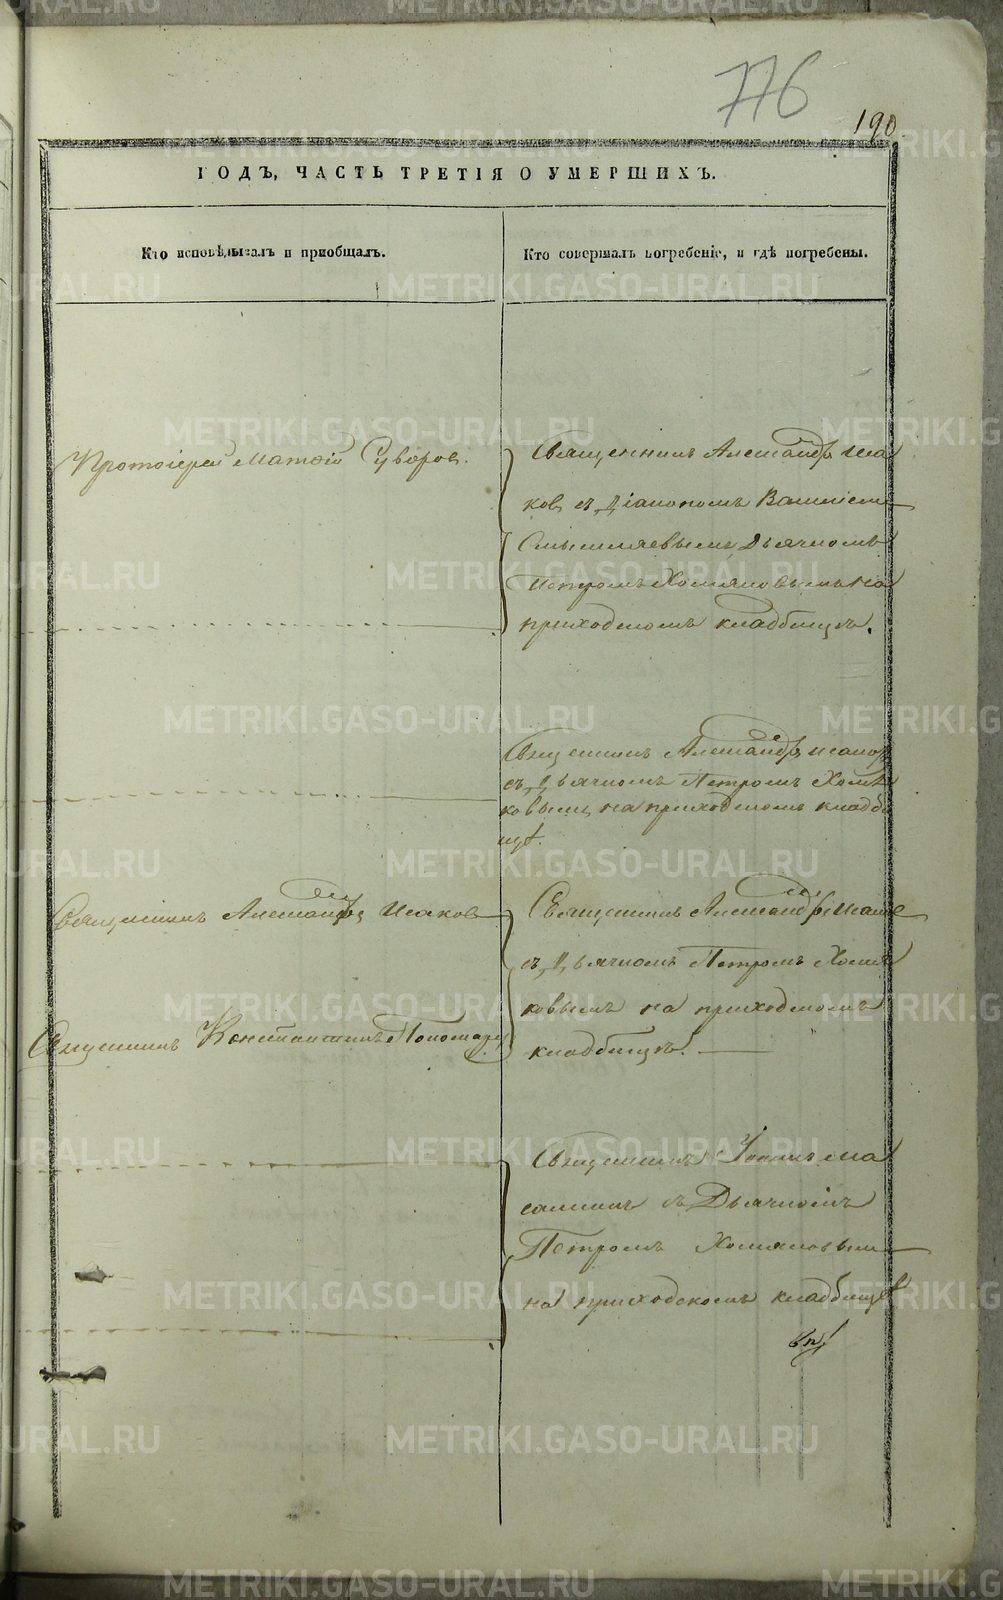 776
190
ГОДЪ, ЧАСТЬ ТРЕТІЯ О УМЕРШИХЪ.
Кто исповѣдывалъ и пріобщалъ.
Кто совершалъ погребеніе, и гдѣ погребены.
Протоіерей Матѳій Суворов.
Священникъ Александръ Иса
ков съ Діакономъ Василіем
Смышляевымъ, Дьячкомъ
Петромъ Хомяковымъ на
приходскомъ кладбищѣ.
Священникъ Александръ Исаков
съ Дьячкомъ Петромъ Хомя
ковымъ на приходскомъ кладби
щѣ.
Священникъ Александръ Исаков
Священникъ Константинъ Пономарев
Священникъ Александръ Исаков
съ Дьячкомъ Петромъ Хомя
ковымъ на приходскомъ
кладбищѣ.
Священникъ Іоаннъ Ма
саминъ съ Дьячкомъ
Петромъ Хомяковым
на приходскомъ кладбищѣ
METRIKI.GASO-URAL.RU